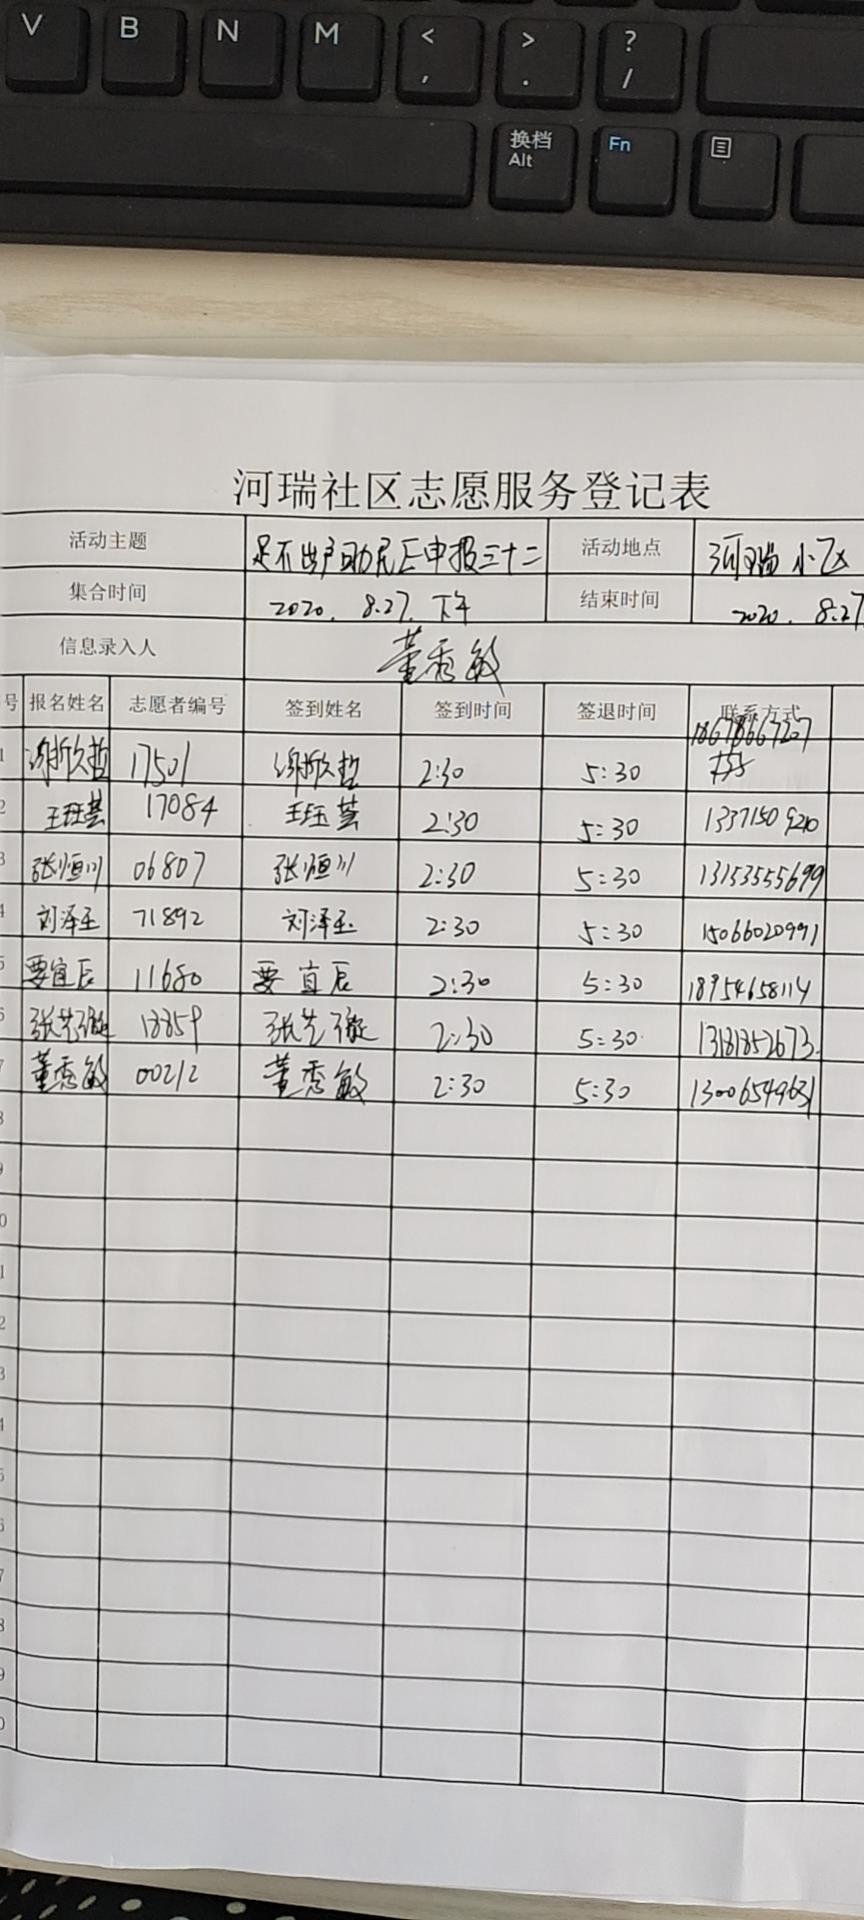 V B N M < , > . ? /
换档 Alt Fn
河瑞社区志愿服务登记表
活动主题 足不出户助民工申报三十二 活动地点 河瑞小区
集合时间 2020. 8.27. 下午 结束时间 2020. 8.27
信息录入人 董秀敏
号 报名姓名 志愿者编号 签到姓名 签到时间 签退时间 联系方式
1 17501 2:30 5:30 18678667207
2 王珏芸 17084 王珏芸 2:30 5:30 13371509210
3 张恒川 06807 张恒川 2:30 5:30 13153555699
4 刘泽玉 71892 刘泽玉 2:30 5:30 15066020991
5 要宜辰 11680 要宜辰 2:30 5:30 18954658114
6 2:30 5:30 13181352673
7 董秀敏 00212 董秀敏 2:30 5:30 13006549631
8
9
0
1
2
3
4
5
6
7
8
9
0